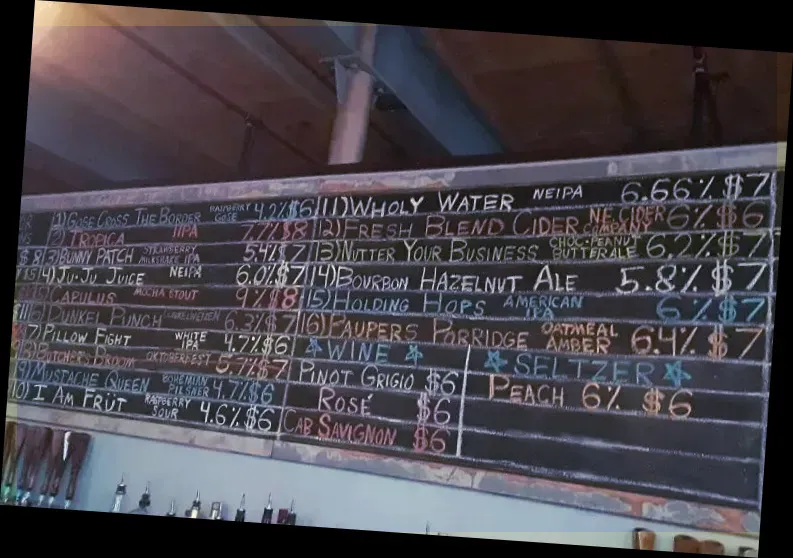 1) Gose Cross The Border Raspberry Gose 4.2% $6
2) Tropica IIPA 7.7% $8
3) Bunny Patch Strawberry Milkshake IPA 5.4% $7
4) Ju-Ju Juice NEIPA 6.0% $7
Capulus Mocha Stout 9% $8
Dunkel Punch 6.3% $7
7) Pillow Fight White IPA 4.7% $6
8) Butchers Broom Oktoberfest 5.7% $7
9) Mustache Queen Bohemian Pilsner 4.7% $6
10) I Am Früt Raspberry Sour 4.6% $6
11) Wholy Water NEIPA 6.66% $7
12) Fresh Blend Cider NE Cider Company 6% $6
13) Nutter Your Business Choc-Peanut Butter Ale 6.2% $7
14) Bourbon Hazelnut Ale 5.8% $7
15) Holding Hops American IPA 6% $7
16) Paupers Porridge Oatmeal Amber 6.4% $7
Wine
Pinot Grigio $6
Rosé $6
Cab Savignon $6
Seltzer
Peach 6% $6